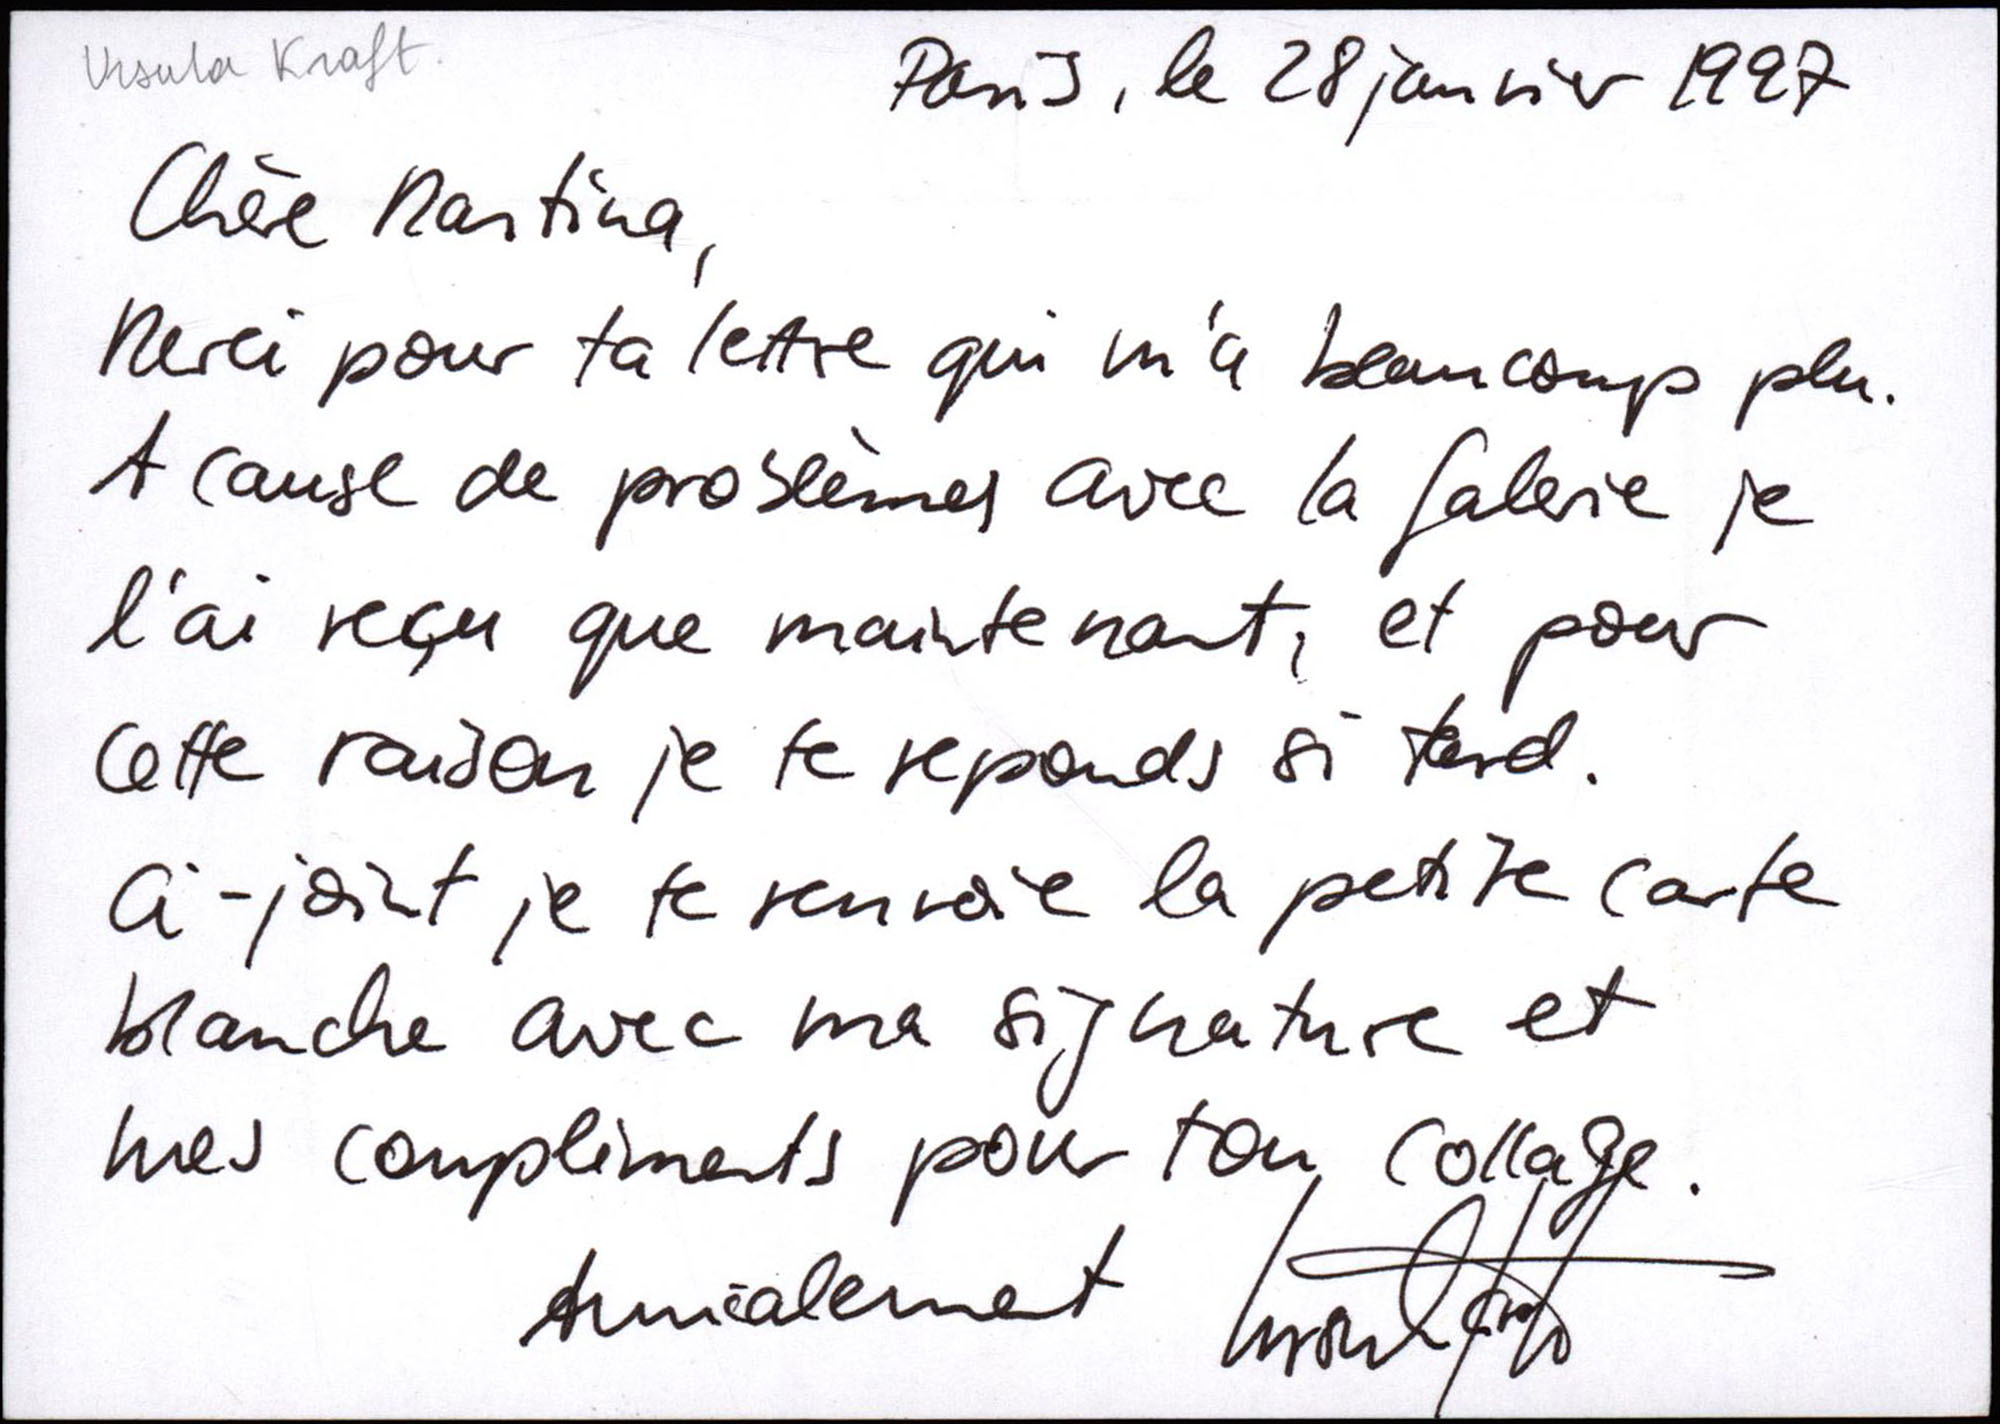 Ursula Kraft.
Paris, le 28 janvier 1997
Chère Martina,
Merci pour ta lettre qui m'a beaucoup plu.
A cause de problèmes avec la Galerie je
l'ai reçu que maintenant, et pour
cette raison je te reponds si tard.
Ci-joint je te renvoie la petite carte
blanche avec ma signature et
mes compliments pour ton collage.
Amicalement Ursula Kraft